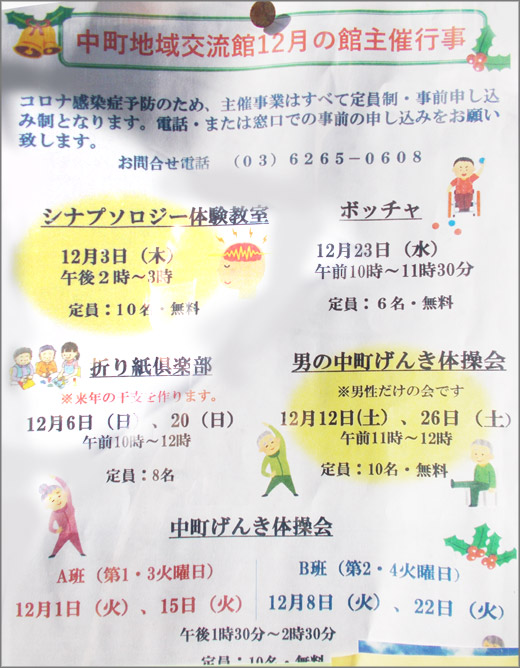 中町地域交流館12月の館主催行事
コロナ感染症予防のため、主催事業はすべて定員制・事前申し込
み制となります。電話・または窓口での事前の申し込みをお願い
致します。
お問合せ電話　（０３）６２６５－０６０８
シナプソロジー体験教室
12月3日（木）
午後２時～3時
定員：１０名・無料
ボッチャ
12月23日（水）
午前10時～11時30分
定員：６名・無料
折り紙倶楽部
※来年の干支を作ります。
12月6日（日）、20（日）
午前10時～12時
定員：8名
男の中町げんき体操会
※男性だけの会です
12月12日(土)、26日（土）
午前11時～12時
定員：10名・無料
中町げんき体操会
A班（第1・3火曜日）
12月1日（火）、15日（火）
B班（第2・4火曜日）
12月8日（火）、22日（火）
午後1時30分～2時30分
定員：10名・無料